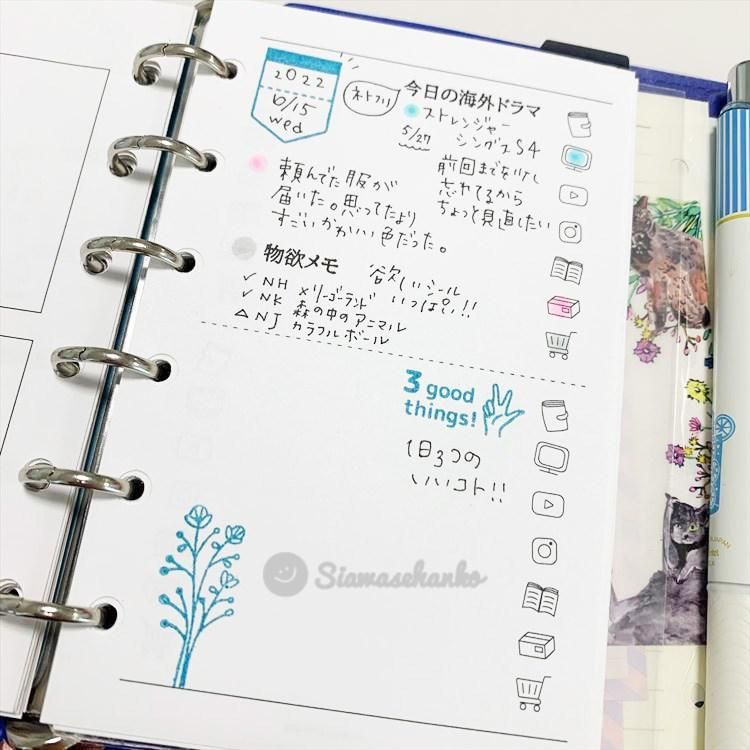 2022
6/15
wed
ネトフリ
今日の海外ドラマ
ストレンジャー
シングス S4
5/27
前回までをいい
忘れてるから
ちょっと見直したい
頼んでた服が
届いた。思ってたより
すごいかわいい色だった。
物欲メモ
欲しいシール
いっぱい!!
✓ NH メリーゴーランド
✓ NK 森の中のアニマル
△ NJ カラフルボール
3 good
things!
1日3つの
いいコト!!
Siawasehanko
JAPAN